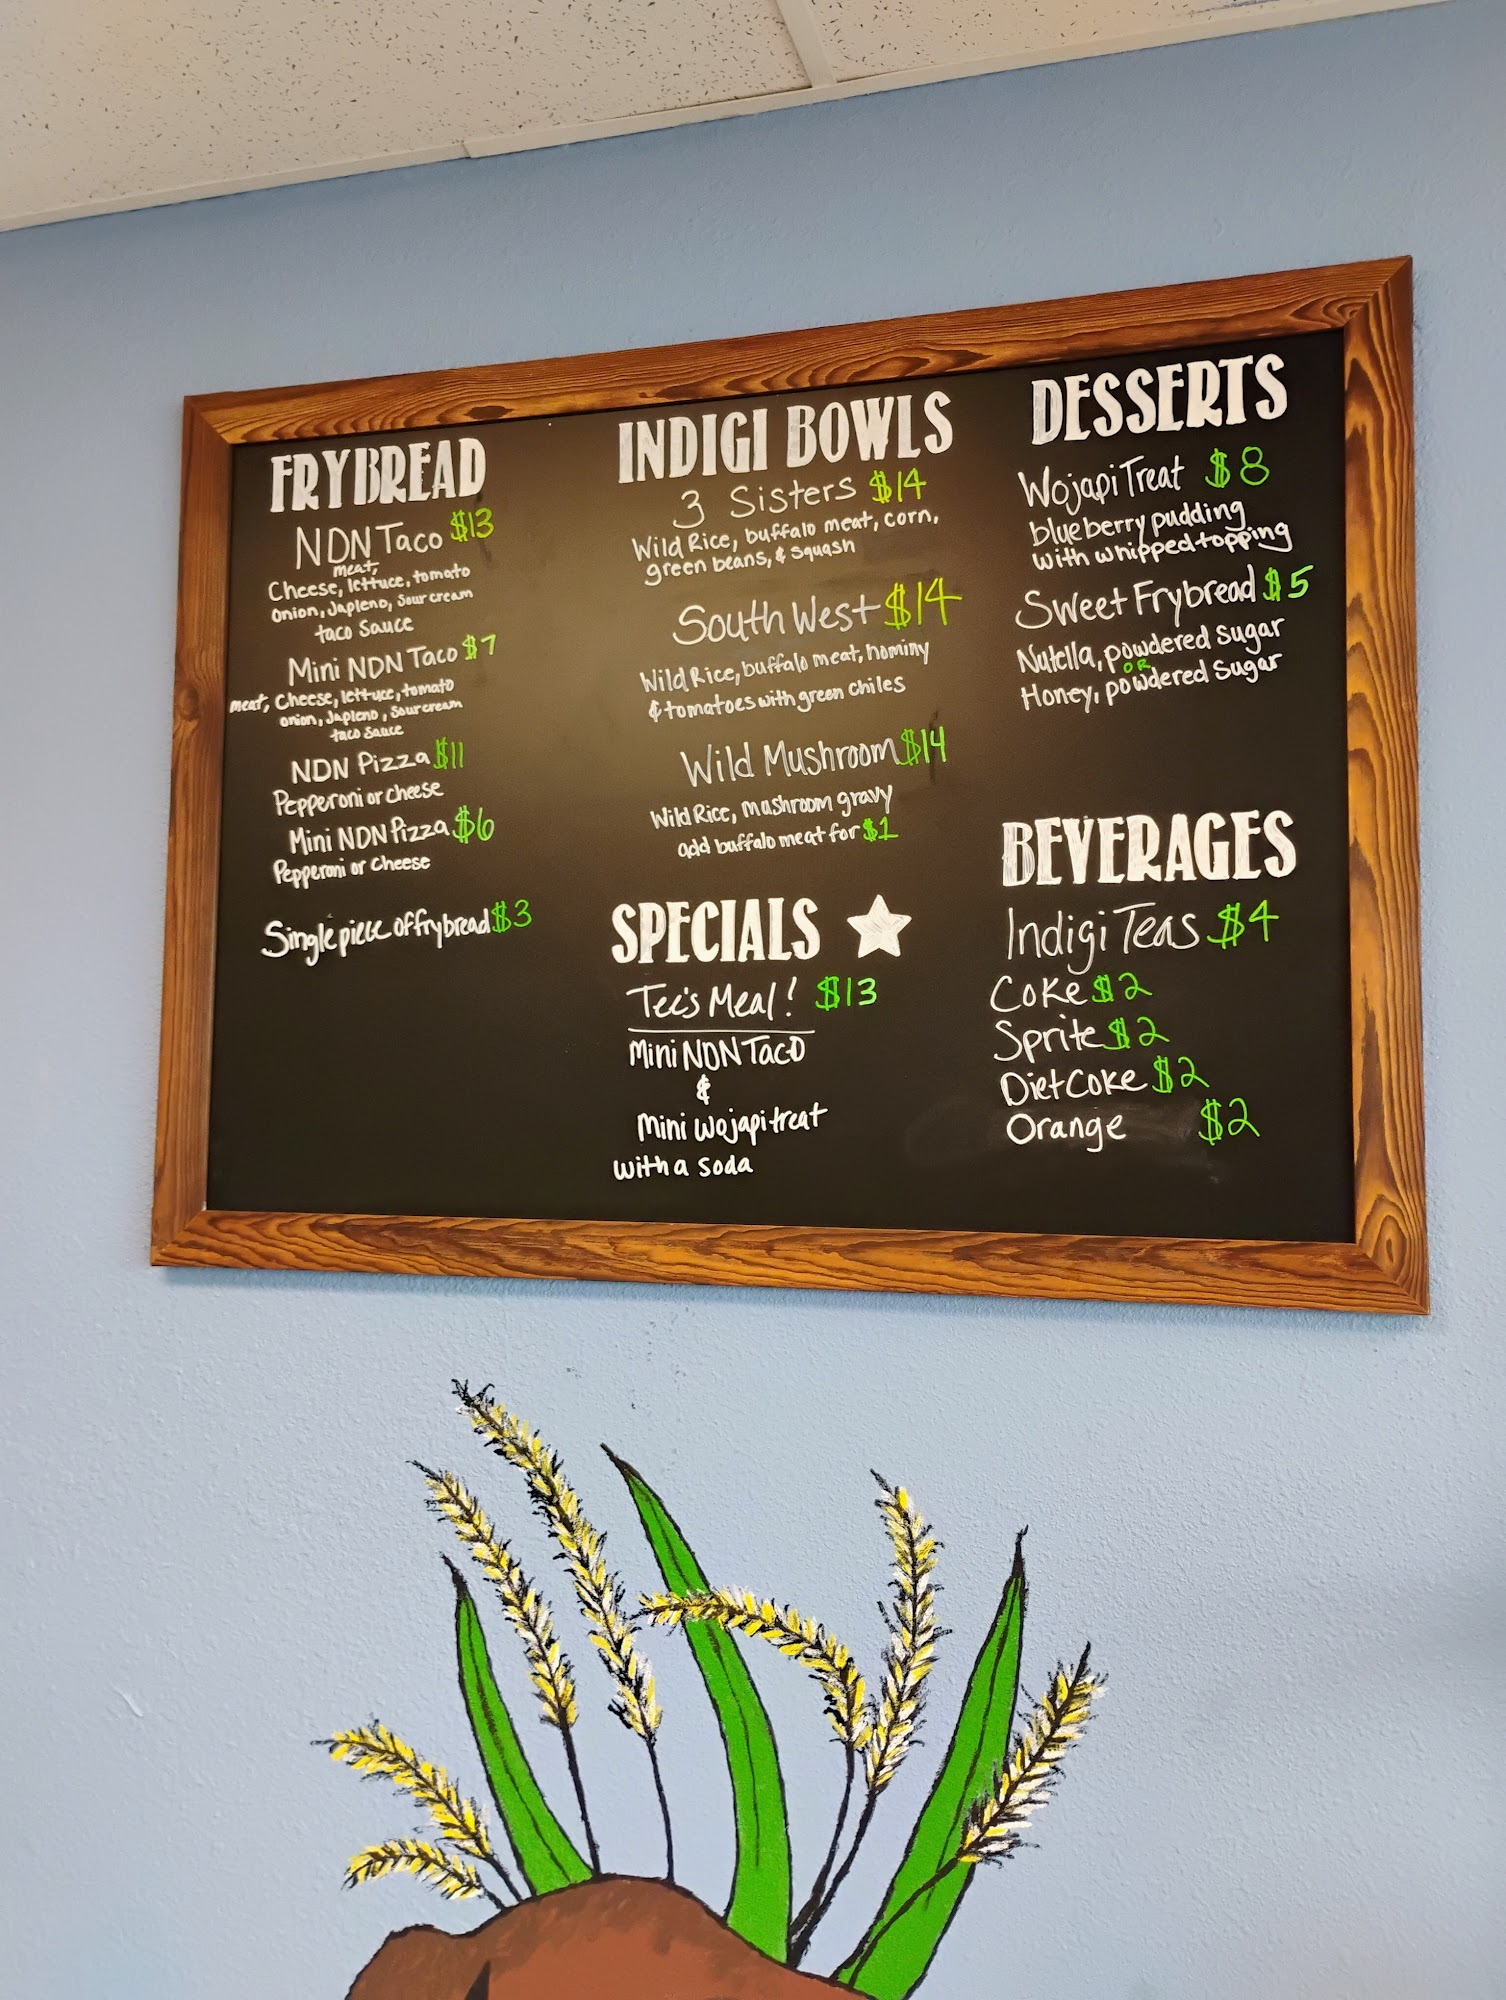 FRYBREAD
NDN Taco $13
meat,
Cheese, lettuce, tomato
onion, Japleno, Sour cream
taco Sauce
Mini NDN Taco $7
meat, Cheese, lettuce, tomato
onion, Japleno, Sour cream
taco Sauce
NDN Pizza $11
Pepperoni or cheese
Mini NDN Pizza $6
Pepperoni or cheese
Single piece of frybread $3
INDIGI BOWLS
3 Sisters $14
Wild Rice, buffalo meat, corn,
green beans, & squash
South West $14
Wild Rice, buffalo meat, hominy
& tomatoes with green chiles
Wild Mushroom $14
Wild Rice, mushroom gravy
add buffalo meat for $1
SPECIALS
Tee's Meal! $13
Mini NDN Taco
&
Mini wojapi treat
with a soda
DESSERTS
Wojapi Treat $8
blueberry pudding
with whipped topping
Sweet Frybread $5
Nutella, powdered sugar
OR
Honey, powdered sugar
BEVERAGES
Indigi Teas $4
Coke $2
Sprite $2
Diet Coke $2
Orange $2